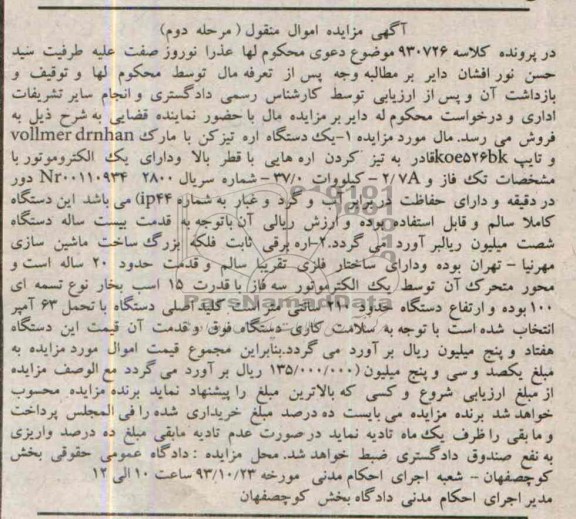 آگهی مزایده اموال منقول (مرحله دوم)
در پرونده کلاسه ۹۳۰۷۲۶ موضوع دعوی محکوم لها عذرا نوروز صفت علیه طرفیت سید
حسن نور افشان دایر بر مطالبه وجه پس از تعرفه مال توسط محکوم لها و توقیف و
بازداشت آن و پس از ارزیابی توسط کارشناس رسمی دادگستری و انجام سایر تشریفات
اداری و درخواست محکوم له دایر بر مزایده مال با حضور نماینده قضایی به شرح ذیل به
فروش می رسد. مال مورد مزایده ۱-یک دستگاه اره تیزکن با مارک vollmer drnhan
و تایپ koe۵۲۶bk قادر به تیز کردن اره هایی با قطر بالا ودارای یک الکتروموتور با
مشخصات تک فاز و ۲/۷A - کیلووات ۳۷/۰ - شماره سریال Nr۰۰۱۱۰۹۳۴ ۲۸۰۰ دور
در دقیقه و دارای حفاظت در برابر آب و گرد و غبار به شماره ip۴۴) می باشد این دستگاه
کاملا سالم و قابل استفاده بوده و ارزش ریالی آن باتوجه به قدمت بیست ساله دستگاه
شصت میلیون ریالبر آورد می گردد.۲-اره برقی ثابت فلکه بزرگ ساخت ماشین سازی
مهرنیا - تهران بوده ودارای ساختار فلزی تقریبا سالم و قدمت حدود ۲۰ ساله است و
محور متحرک آن توسط یک الکتروموتور سه فاز با قدرت ۱۵ اسب بخار نوع تسمه ای
۱۰۰ بوده و ارتفاع دستگاه حدود ۲۱۰ سانتی متر است کلید اصلی دستگاه با تحمل ۶۳ آمپر
انتخاب شده است با توجه به سلامت کاری دستگاه فوق و قدمت آن قیمت این دستگاه
هفتاد و پنج میلیون ریال بر آورد می گردد.بنابراین مجموع قیمت اموال مورد مزایده به
مبلغ یکصد و سی و پنج میلیون (۱۳۵/۰۰۰/۰۰۰ ریال بر آورد می گردد مع الوصف مزایده
از مبلغ ارزیابی شروع و کسی که بالاترین مبلغ را پیشنهاد نماید برنده مزایده محسوب
خواهد شد برنده مزایده می بایست ده درصد مبلغ خریداری شده را فی المجلس پرداخت
و مابقی را ظرف یک ماه تادیه نماید در صورت عدم تادیه مابقی مبلغ ده درصد واریزی
به نفع صندوق دادگستری ضبط خواهد شد. محل مزایده : دادگاه عمومی حقوقی بخش
کوچصفهان - شعبه اجرای احکام مدنی مورخه ۹۳/۱۰/۲۳ ساعت ۱۰ الی ۱۲
مدیر اجرای احکام مدنی دادگاه بخش کوچصفهان
ParsNamadData